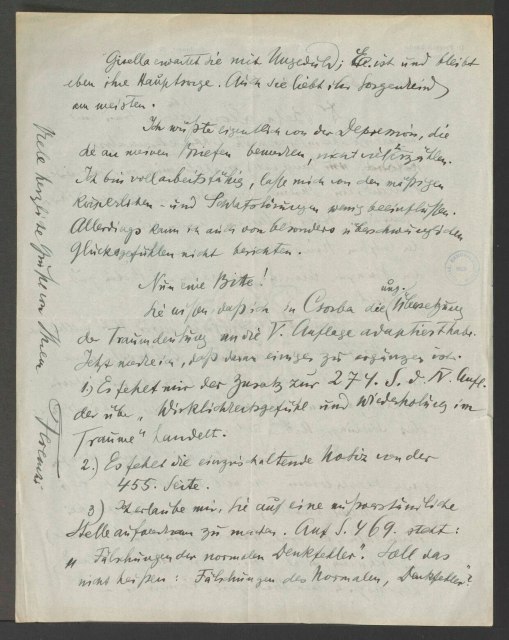 Gisella erwartet sie mit Ungeduld; Er ist und bleibt
eben ihre Hauptsorge. Auch sie liebt ihr Sorgenkind
am meisten.
Ich wüsste eigentlich von der Depression, die
Sie an meinen Briefen bemerken, nicht viel zu erzählen.
Ich bin voll arbeitsfähig, lasse mich von den mässigen
körperlichen - und Schlafstörungen wenig beeinflussen.
Allerdings kann ich auch von besonders überschwenglichen
Glücksgefühlen nicht berichten.
Nun eine Bitte!
Sie wissen dass ich in Csorba die ung. Übersetzung
der Traumdeutung an die V. Auflage adaptiert habe.
Jetzt merke ich, dass daran einiges zu ergänzen wäre.
1.) Es fehlt mir der Zusatz zur 274. S. d. IV. Aufl.
der über „Wirklichkeitsgefühl und Wiederholung im
Traume" handelt.
2.) Es fehlt die einzuschaltende Notiz von der
455. Seite.
3) Ich erlaube mir, Sie auf eine missverständliche
Stelle aufmerksam zu machen. Auf S. 469. steht:
„Fälschungen der normalen Denkfehler". Soll das
nicht heißen: Fälschungen des Normalen, „Denkfehler"?
Viele herzliche Grüße von Ihrem Ferenczi